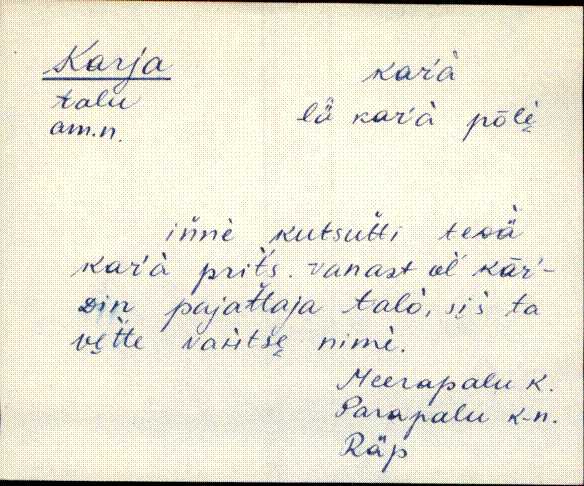 Karja
talu
am.n.
kar'à
lä kar'à pōlè̬
iñnè kutsut̆ti tedä
kar'à prit̆s. vanast ol̆ kār'-
Din pajat̆taja talò, si̬s ta
ve̬t̆te vaŕitse̬ nimè.
Meerapalu k.
Parapalu k-n.
Räp